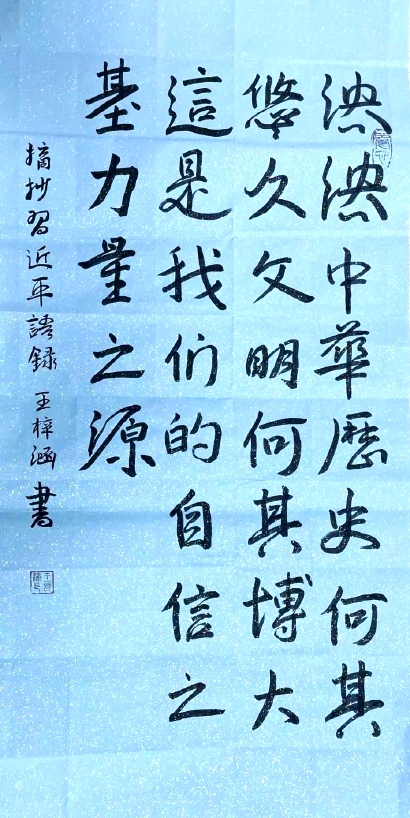 泱泱中華歷史何其
悠久文明何其博大
這是我们的自信之
基力量之源
摘抄習近平語錄 王梓涵書